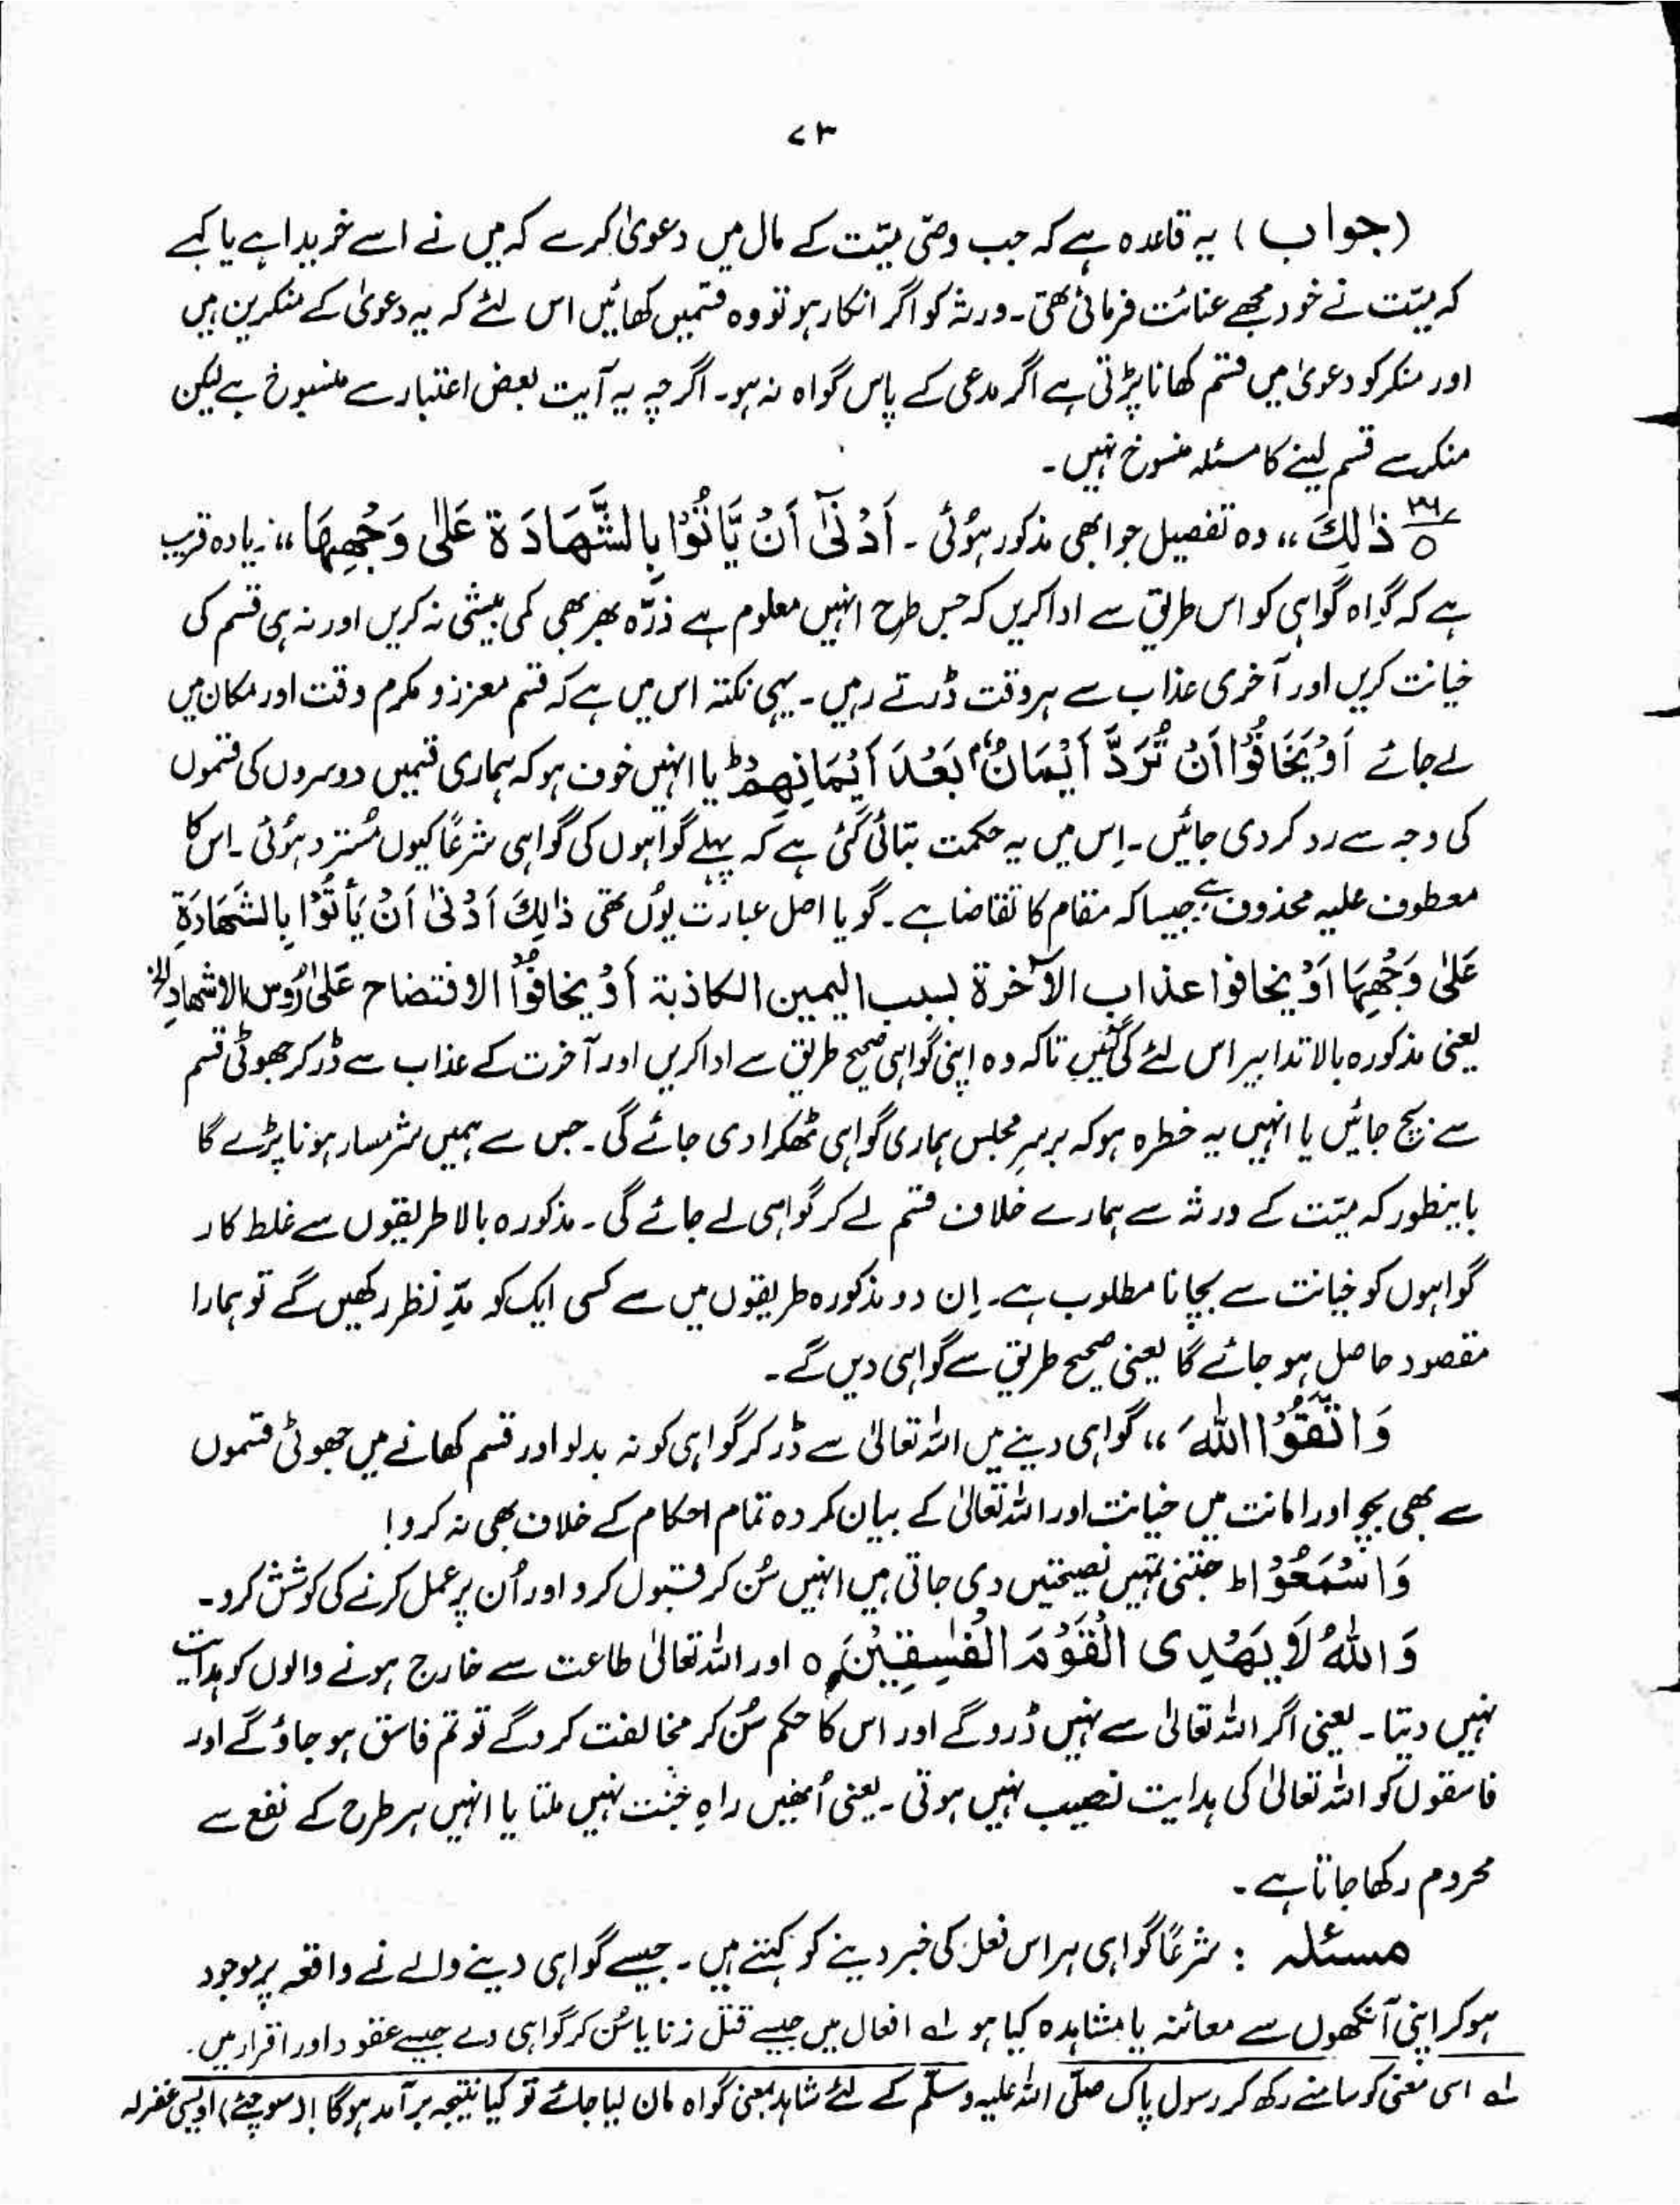 ۷۳
(جواب) یہ قاعدہ ہے کہ جب وصی میّت کے مال میں دعویٰ کرے کہ میں نے اسے خریدا ہے یا کہے
کہ میّت نے خود مجھے عنائت فرمائی تھی۔ ورثہ کو اگر انکار ہو تو وہ قسمیں کھائیں اس لئے کہ یہ دعویٰ کے منکرین ہیں
اور منکر کو دعویٰ میں قسم کھانا پڑتی ہے اگر مدعی کے پاس گواہ نہ ہو۔ اگرچہ یہ آیت بعض اعتبار سے منسوخ ہے لیکن
منکر سے قسم لینے کا مسئلہ منسوخ نہیں۔
ذٰلِكَ ،، وہ تفصیل جو ابھی مذکور ہوئی۔ اَدْنٰٓی اَنْ یَّاْتُوْا بِالشَّهَادَةِ عَلٰی وَجْهِهَا ،، زیادہ قریب
ہے کہ گواہ گواہی کو اس طریق سے ادا کریں کہ جس طرح انہیں معلوم ہے ذرّہ بھر بھی کمی بیشی نہ کریں اور نہ ہی قسم کی
خیانت کریں اور آخری عذاب سے ہر وقت ڈرتے رہیں۔ یہی نکتہ اس میں ہے کہ قسم معزز و مکرم وقت اور مکان میں
لے جائے اَوْ یَخَافُوْا اَنْ تُرَدَّ اَیْمَانٌۢ بَعْدَ اَیْمَانِهِمْ ط یا انہیں خوف ہو کہ ہماری قسمیں دوسروں کی قسموں
کی وجہ سے رد کر دی جائیں۔ اِس میں یہ حکمت بتائی گئی ہے کہ پہلے گواہوں کی گواہی شرعًا کیوں مُسترد ہوئی۔ اس کا
معطوف علیہ محذوف ہے جیسا کہ مقام کا تقاضا ہے۔ گویا اصل عبارت یوں تھی ذٰالِكَ اَدْنٰی اَنْ یَأْتُوْا بِالشَّهَادَةِ
عَلٰی وَجْهِهَا اَوْ یخافوا عذاب الآخرة بسبب الیمین الکاذبة اَوْ یخافُوْا الافتضاح عَلٰی رُوس الاشهادِ الخ
یعنی مذکورہ بالا تدابیر اس لئے کی گئیں تاکہ وہ اپنی گواہی صحیح طریق سے ادا کریں اور آخرت کے عذاب سے ڈر کر جھوٹی قسم
سے بچ جائیں یا انہیں یہ خطرہ ہو کہ برسرِ مجلس ہماری گواہی ٹھکرا دی جائے گی۔ جس سے ہمیں شرمسار ہونا پڑے گا
باینطور کہ میّت کے ورثہ سے ہمارے خلاف قسم لے کر گواہی لے جائے گی۔ مذکورہ بالا طریقوں سے غلط کار
گواہوں کو خیانت سے بچانا مطلوب ہے۔ اِن دو مذکورہ طریقوں میں سے کسی ایک کو مدِّ نظر رکھیں گے تو ہمارا
مقصود حاصل ہو جائے گا یعنی صحیح طریق سے گواہی دیں گے۔
وَاتَّقُوْا اللّٰهَ ،، گواہی دینے میں اللہ تعالیٰ سے ڈر کر گواہی کو نہ بدلو اور قسم کھانے میں جھوٹی قسموں
سے بھی بچو اور امانت میں خیانت اور اللہ تعالیٰ کے بیان کردہ تمام احکام کے خلاف بھی نہ کرو!
وَاسْمَعُوْا ط جتنی تمہیں نصیحتیں دی جاتی ہیں انہیں سُن کر قبول کرو اور اُن پر عمل کرنے کی کوشش کرو۔
وَاللّٰهُ لَا یَهْدِی الْقَوْمَ الْفٰسِقِیْنَ ۝ اور اللہ تعالیٰ طاعت سے خارج ہونے والوں کو ہدایت
نہیں دیتا۔ یعنی اگر اللہ تعالیٰ سے نہیں ڈرو گے اور اس کا حکم سُن کر مخالفت کرو گے تو تم فاسق ہو جاؤ گے اور
فاسقوں کو اللہ تعالیٰ کی ہدایت نصیب نہیں ہوتی۔ یعنی اُنھیں راہِ جنّت نہیں ملتا یا انہیں ہر طرح کے نفع سے
محروم رکھا جاتا ہے۔
مسئلہ : شرعًا گواہی ہر اس فعل کی خبر دینے کو کہتے ہیں۔ جیسے گواہی دینے والے نے واقعہ پر موجود
ہو کر اپنی آنکھوں سے معائنہ یا مشاہدہ کیا ہو لہ افعال میں جیسے قتل زنا یا سُن کر گواہی دے جیسے عقود اور اقرار میں۔
لہ اسی معنی کو سامنے رکھ کر رسول پاک صلّی اللہ علیہ وسلّم کے لئے شاہد بمعنی گواہ مان لیا جائے تو کیا نتیجہ برآمد ہوگا! (سوچئے) اویسی غفرلہ